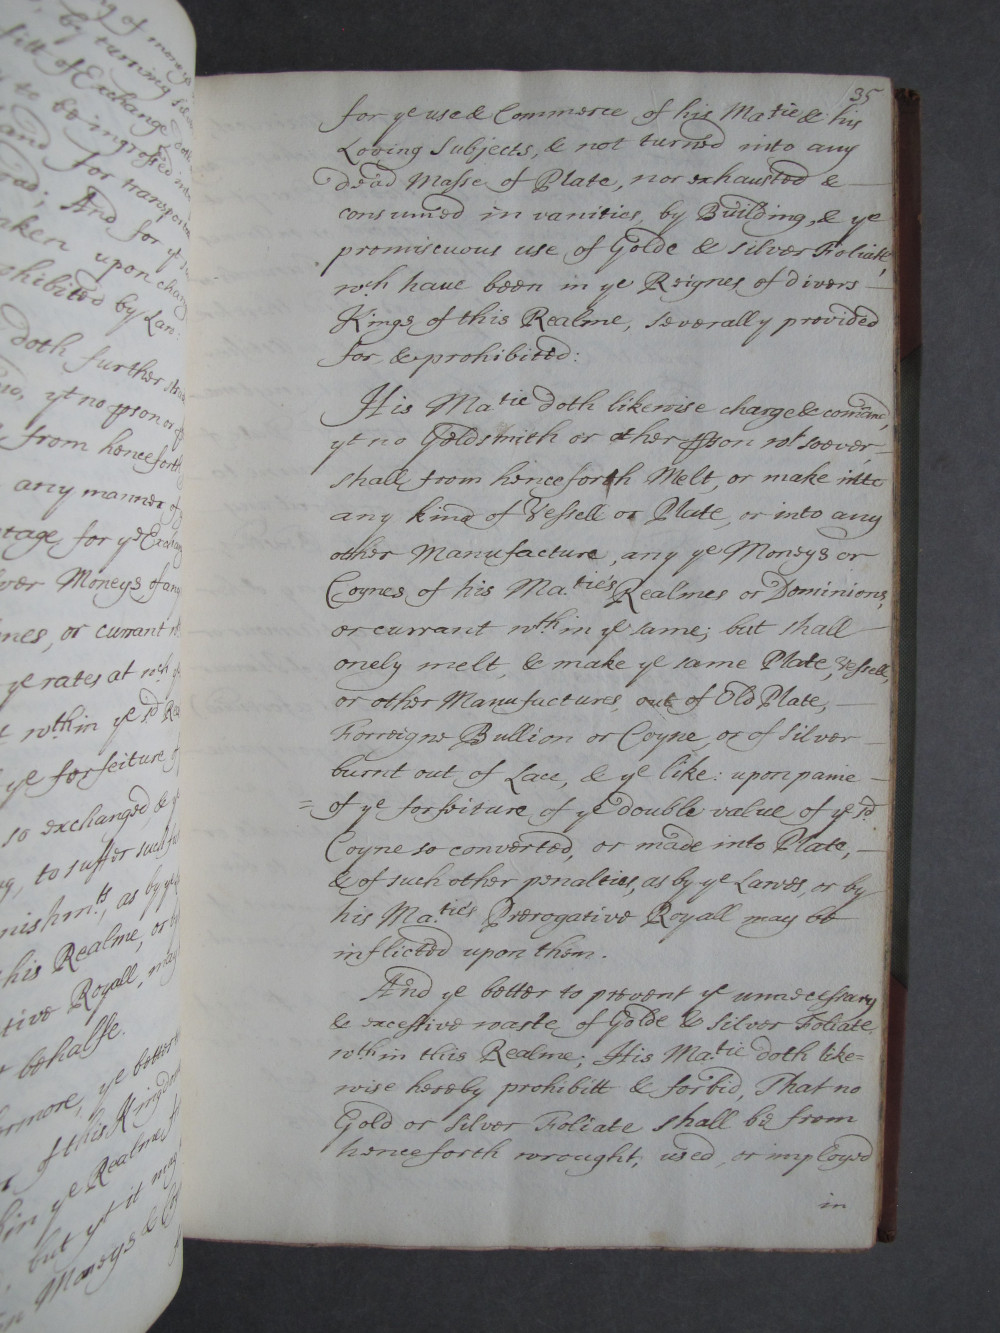 ng of moneys
by turning sil
fitt of Exchange doth
to be ingrossed into
and for transportac
rad; And for yt
aken upon char
ohibited by Law:
doth further st
yt no pson or p
from henceforth
any manner of
tage, for ye Exchan
lver Moneys of any
mes, or currant wt
ye rates at wch ye
t wthin ye sd Rea
ye forfeiture of
so exchanged, & ye
to suffer such fur
nishmts, as by ye
his Realme, or by
tive Royall, may
behalfe.
ermore, ye better
of this Kingdom
hin ye Realme,
but yt it may
Moneys & C
35
for ye use & Commerce of his Matie & his
Loving Subjects, & not turned into any
dead Masse of Plate, nor exhausted & —
consumed in vanities, by Building, & ye
promiscuous use of Golde & Silver Foliate,
wch haue been in ye Reignes of divers —
Kings of this Realme, severally provided
for & prohibitted:
His Matie doth likewise charge & comand,
yt no Goldsmith or other pson wt soever —
shall from henceforth Melt, or make into
any kind of Vessell or Plate, or into any
other Manufacture, any ye Moneys or
Coynes of his Ma:ties Realmes or Dominions,
or currant wthin ye same; but shall —
onely melt, & make ye same Plate, Vessell,
or other Manufactures, out of Old Plate, —
Forreigne Bullion or Coyne, or of silver —
burnt out of Lace, & ye like: upon paine —
= of ye forfeiture of ye double value of ye sd
Coyne so converted, or made into Plate, —
& of such other penalties, as by ye Lawes, or by
his Ma:ties Prerogative Royall may be
inflicted upon them.
And ye better to prevent ye unnecessary
& excessive waste of Golde & Silver Foliate
wthin this Realme; His Ma:tie doth like=
wise hereby prohibitt & forbid, That no
Gold or Silver Foliate shall be from
henceforth wrought, used, or imployed
in